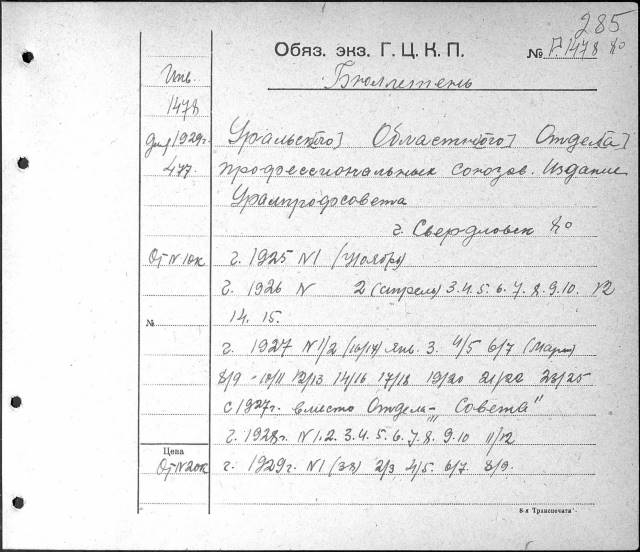 285
Обяз. экз. Г. Ц. К. П. № P. 1478
Инв. Бюллетень
1478
1929г. Уральск[ого] Областн[ого] Отдел[а]
477 профессиональных союзов. Издание
Уралпрофсовета
г. Свердловск
От N 10к г. 1925 N1 (Ноябрь)
г. 1926 N 2 (апрель) 3. 4. 5. 6. 7. 8. 9. 10. 12
14. 15.
№
г. 1927 N 1/2 (16/17) янв. 3. 4/5 6/7 (Март)
8/9 - 10/11 12/13 14/16 17/18 19/20 21/22 23/25
с 1927г. вместо Отдел - "Совета"
г. 1928г. N 1. 2. 3. 4. 5. 6. 7. 8. 9. 10 11/12
Цена
От N 20к г. 1929г. N1 (38) 2/3 4/5 6/7 8/9.
8-я Транспечати.